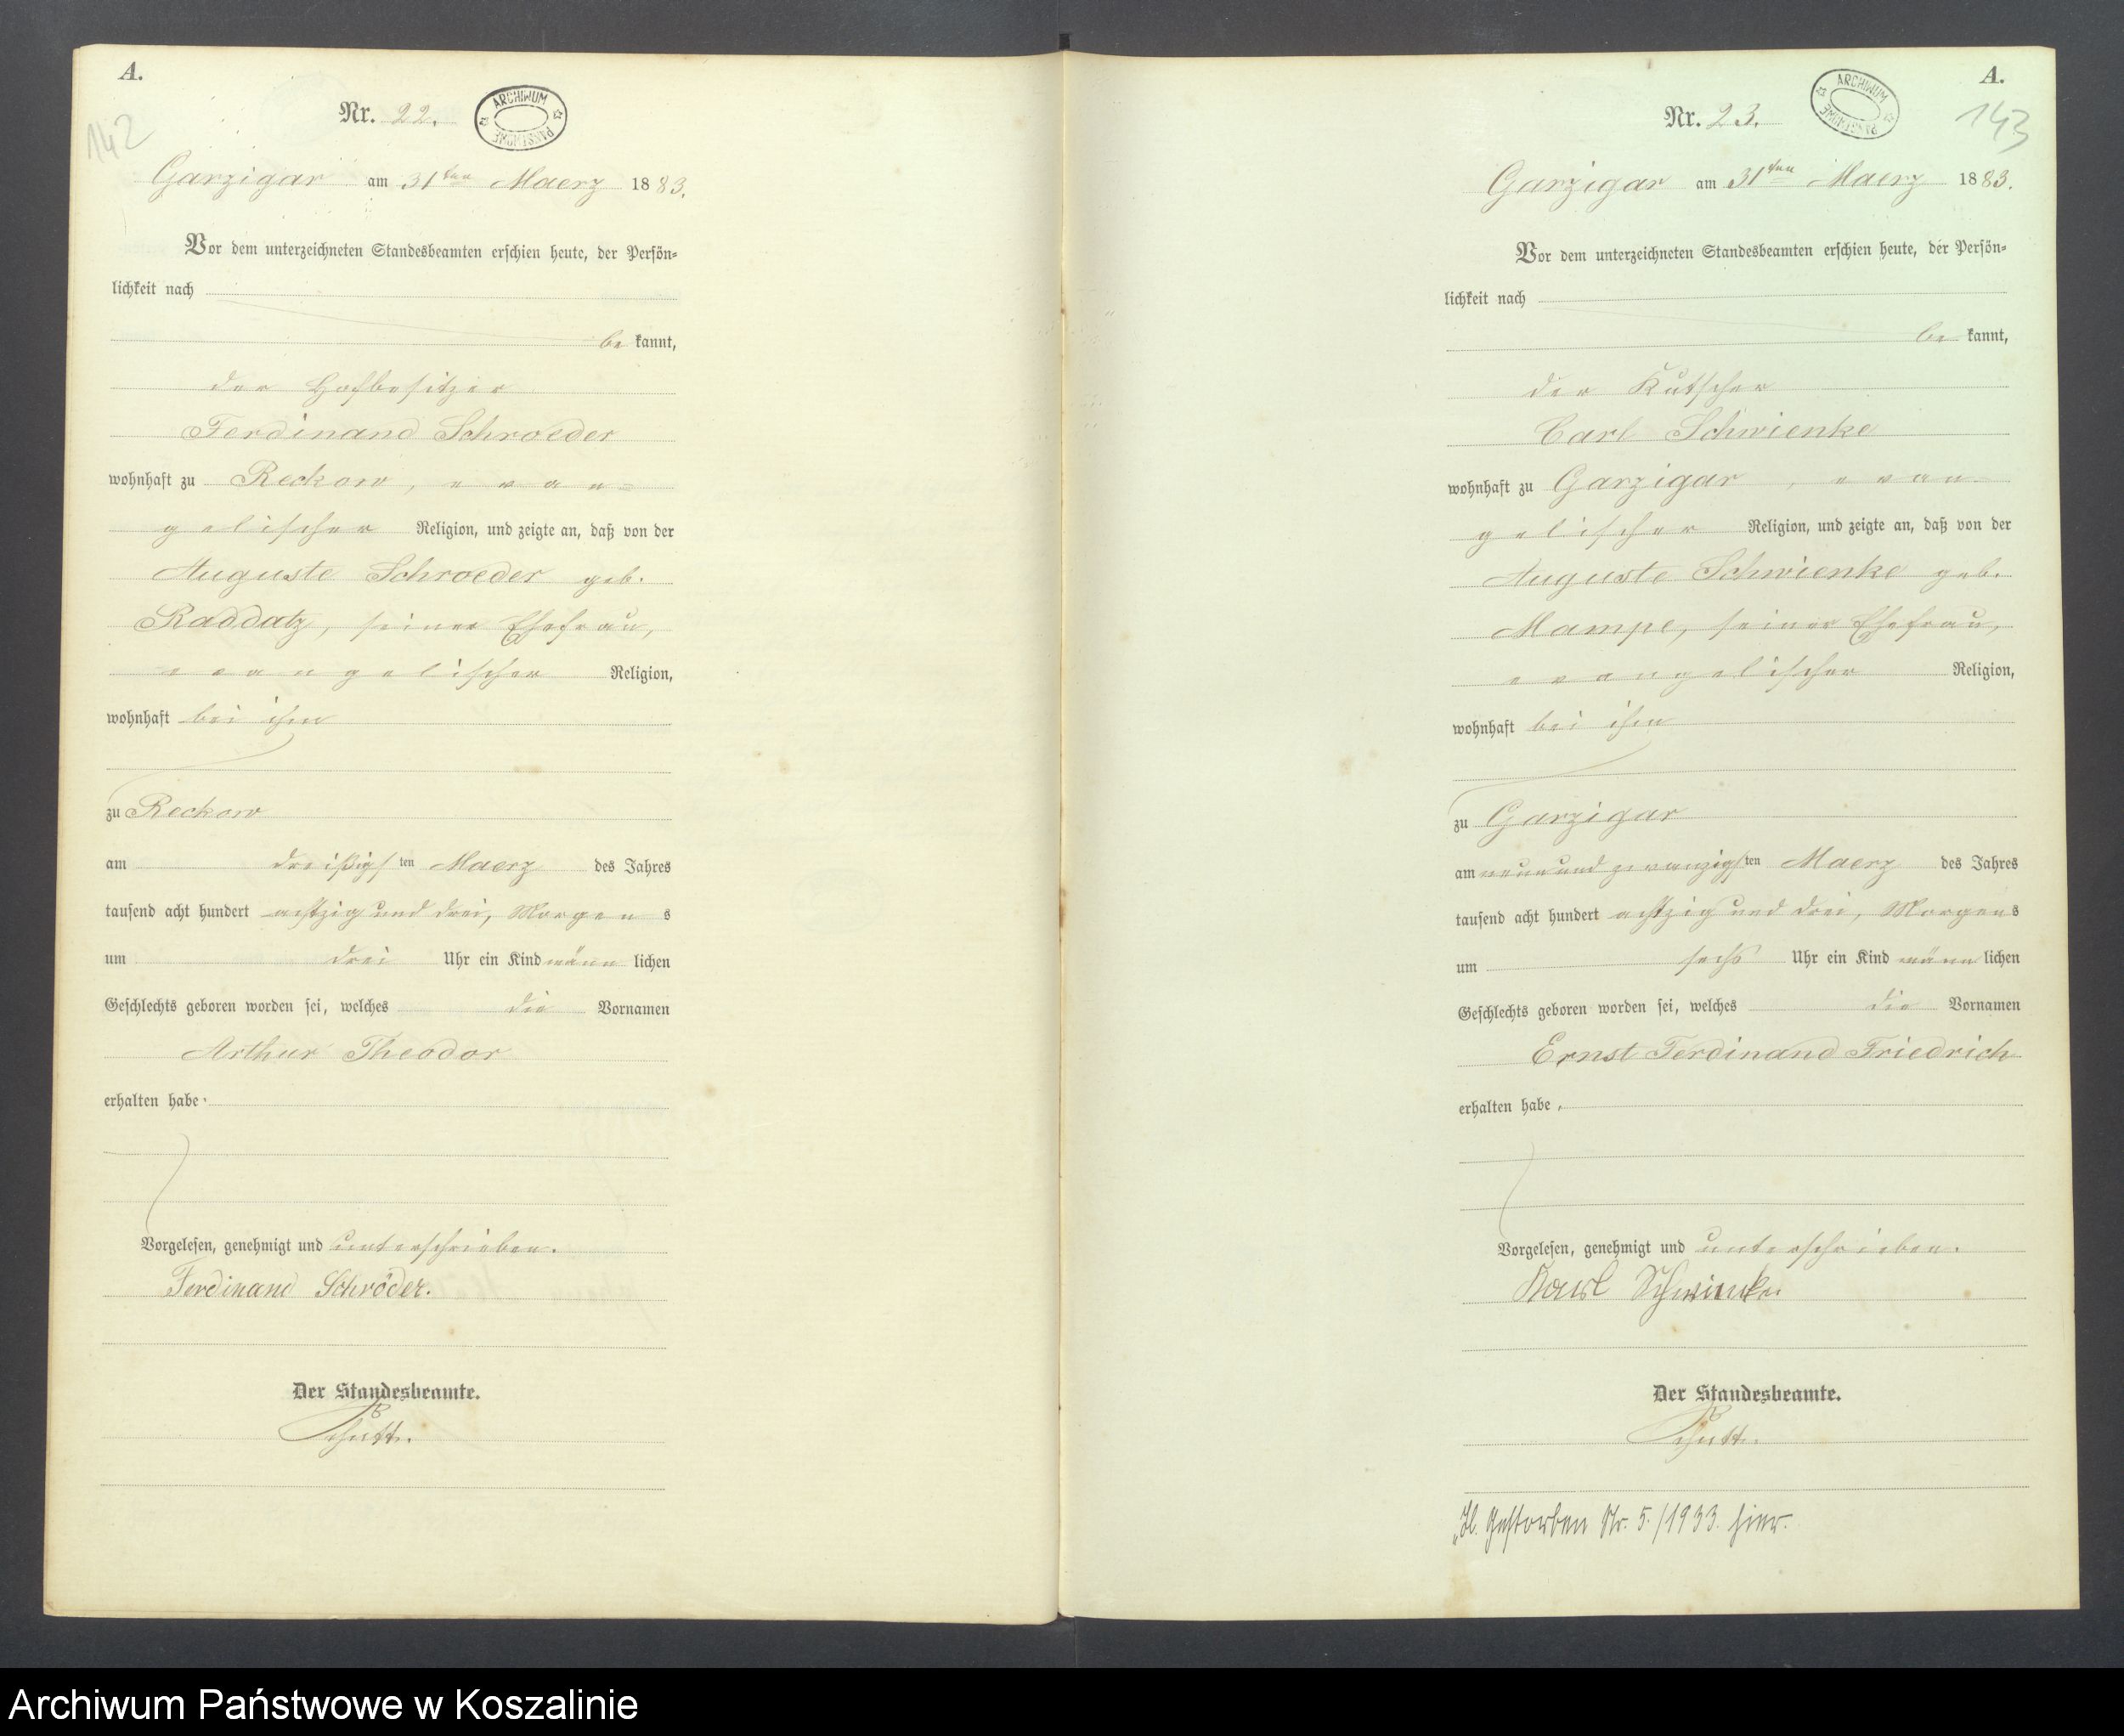 A.
142
Nr. 22.
ARCHIWUM PAŃSTWOWE
Garzigar am 31ten Maerz 1883.
Vor dem unterzeichneten Standesbeamten erschien heute, der Persön-
lichkeit nach
be kannt,
der Hofbesitzer
Ferdinand Schroeder
wohnhaft zu Reckow, evan-
gelischer Religion, und zeigte an, daß von der
Auguste Schroeder geb.
Raddatz, seiner Ehefrau,
evangelischer Religion,
wohnhaft bei ihm
zu Reckow
am dreißigsten Maerz des Jahres
tausend acht hundert achtzig und drei, Morgens
um drei Uhr ein Kind männlichen
Geschlechts geboren worden sei, welches die Vornamen
Arthur Theodor
erhalten habe.
Vorgelesen, genehmigt und unterschrieben.
Ferdinand Schröder.
Der Standesbeamte.
A.
143
Nr. 23.
ARCHIWUM PAŃSTWOWE
Garzigar am 31ten Maerz 1883.
Vor dem unterzeichneten Standesbeamten erschien heute, der Persön-
lichkeit nach
be kannt,
der Kutscher
Carl Schwienke
wohnhaft zu Garzigar, evan-
gelischer Religion, und zeigte an, daß von der
Auguste Schwienke geb.
Mampe, seiner Ehefrau,
evangelischer Religion,
wohnhaft bei ihm
zu Garzigar
am neunundzwanzigsten Maerz des Jahres
tausend acht hundert achtzig und drei, Morgens
um sechs Uhr ein Kind männlichen
Geschlechts geboren worden sei, welches die Vornamen
Ernst Ferdinand Friedrich
erhalten habe.
Vorgelesen, genehmigt und unterschrieben.
Karl Schwienke
Der Standesbeamte.
Gestorben Nr. 5./1933. hier.
Archiwum Państwowe w Koszalinie